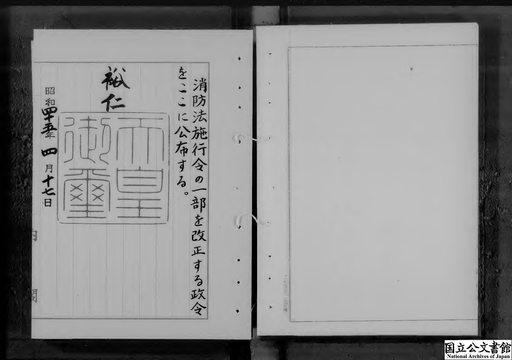 消防法施行令の一部を改正する政令
をここに公布する。
裕仁
天皇
御璽
昭和四十五年四月十七日
内閣
国立公文書館
National Archives of Japan